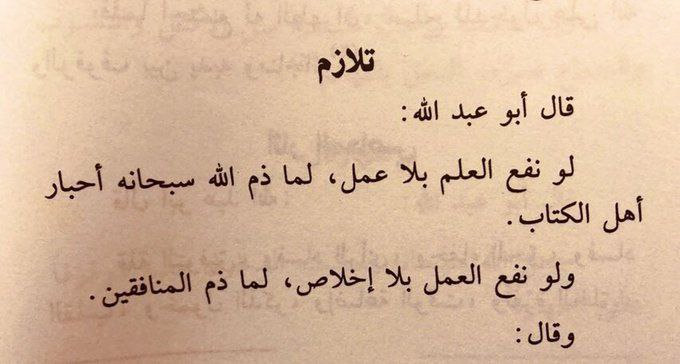 تلازم
قال أبو عبد الله:
لو نفع العلم بلا عمل، لما ذم الله سبحانه أحبار
أهل الكتاب.
ولو نفع العمل بلا إخلاص، لما ذم المنافقين.
وقال: